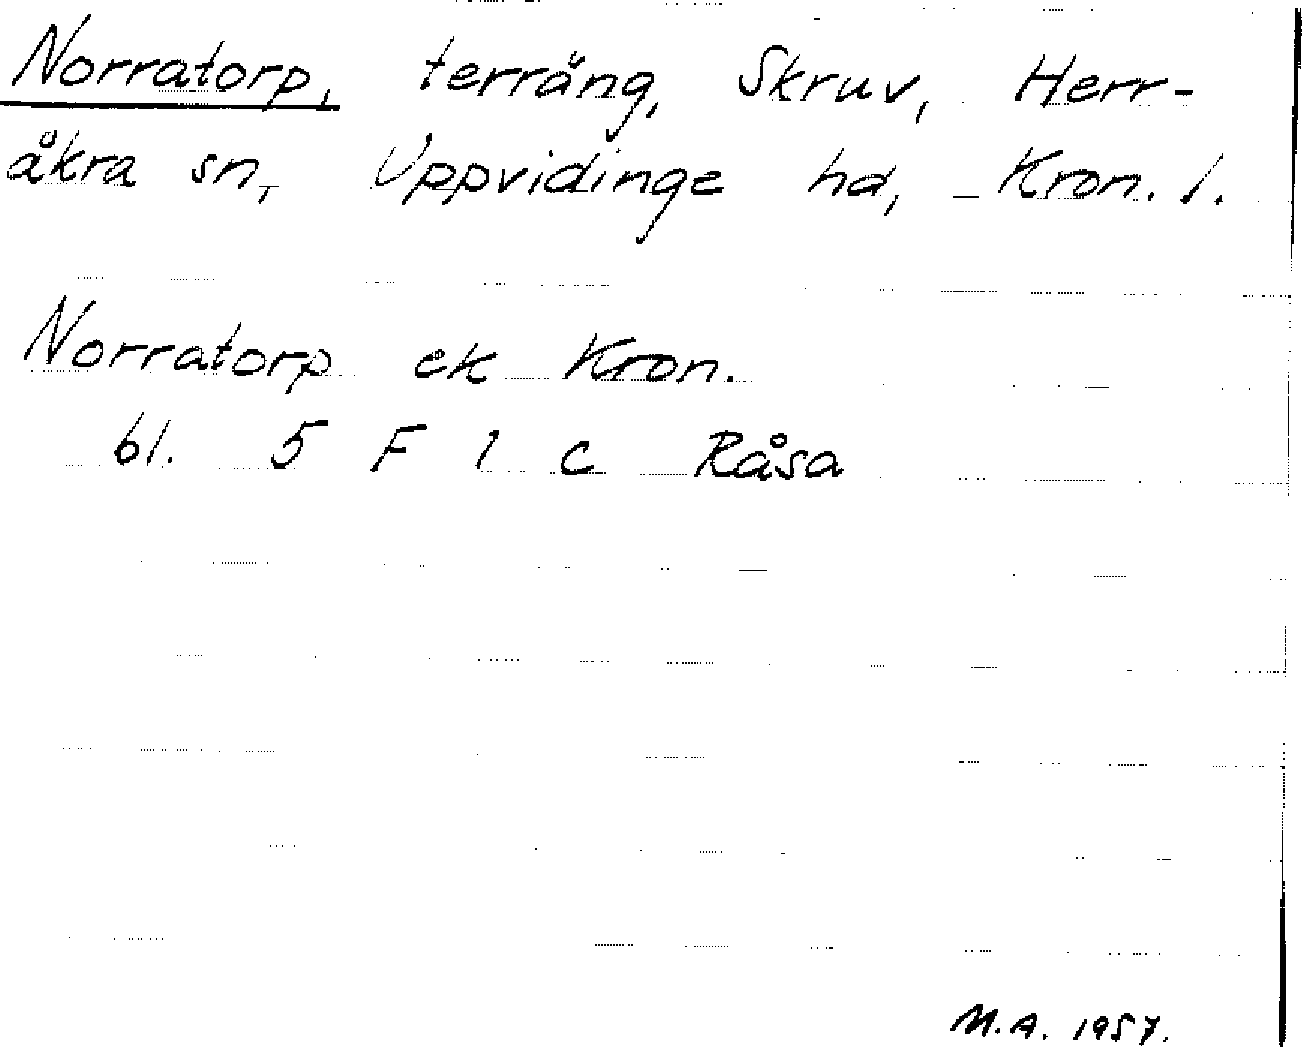 Norratorp, terräng, Skruv, Herr-
åkra sn, Uppvidinge hd, Kron. l.
Norratorp ek Kron.
bl. 5 F 1 c Råsa
M.A. 1957.